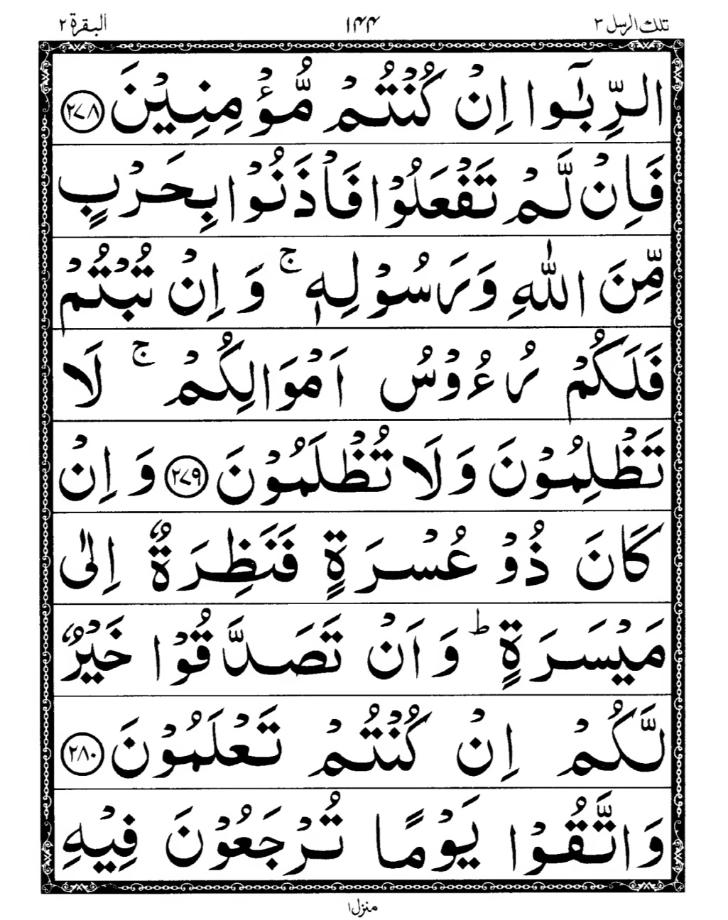 تلك الرسل ٣ ١٤٤ البقرة ٢
الرِّبٰٓوا اِنْ كُنْتُمْ مُّؤْمِنِيْنَ ﴿٢٧٨﴾
فَاِنْ لَّمْ تَفْعَلُوْا فَاْذَنُوْا بِحَرْبٍ
مِّنَ اللّٰهِ وَرَسُوْلِهٖ ۚ وَ اِنْ تُبْتُمْ
فَلَكُمْ رُءُوْسُ اَمْوَالِكُمْ ۚ لَا
تَظْلِمُوْنَ وَلَا تُظْلَمُوْنَ ﴿٢٧٩﴾ وَ اِنْ
كَانَ ذُوْ عُسْرَةٍ فَنَظِرَةٌ اِلٰى
مَيْسَرَةٍ ؕ وَ اَنْ تَصَدَّقُوْا خَيْرٌ
لَّكُمْ اِنْ كُنْتُمْ تَعْلَمُوْنَ ﴿٢٨٠﴾
وَ اتَّقُوْا يَوْمًا تُرْجَعُوْنَ فِيْهِ
منزل ١